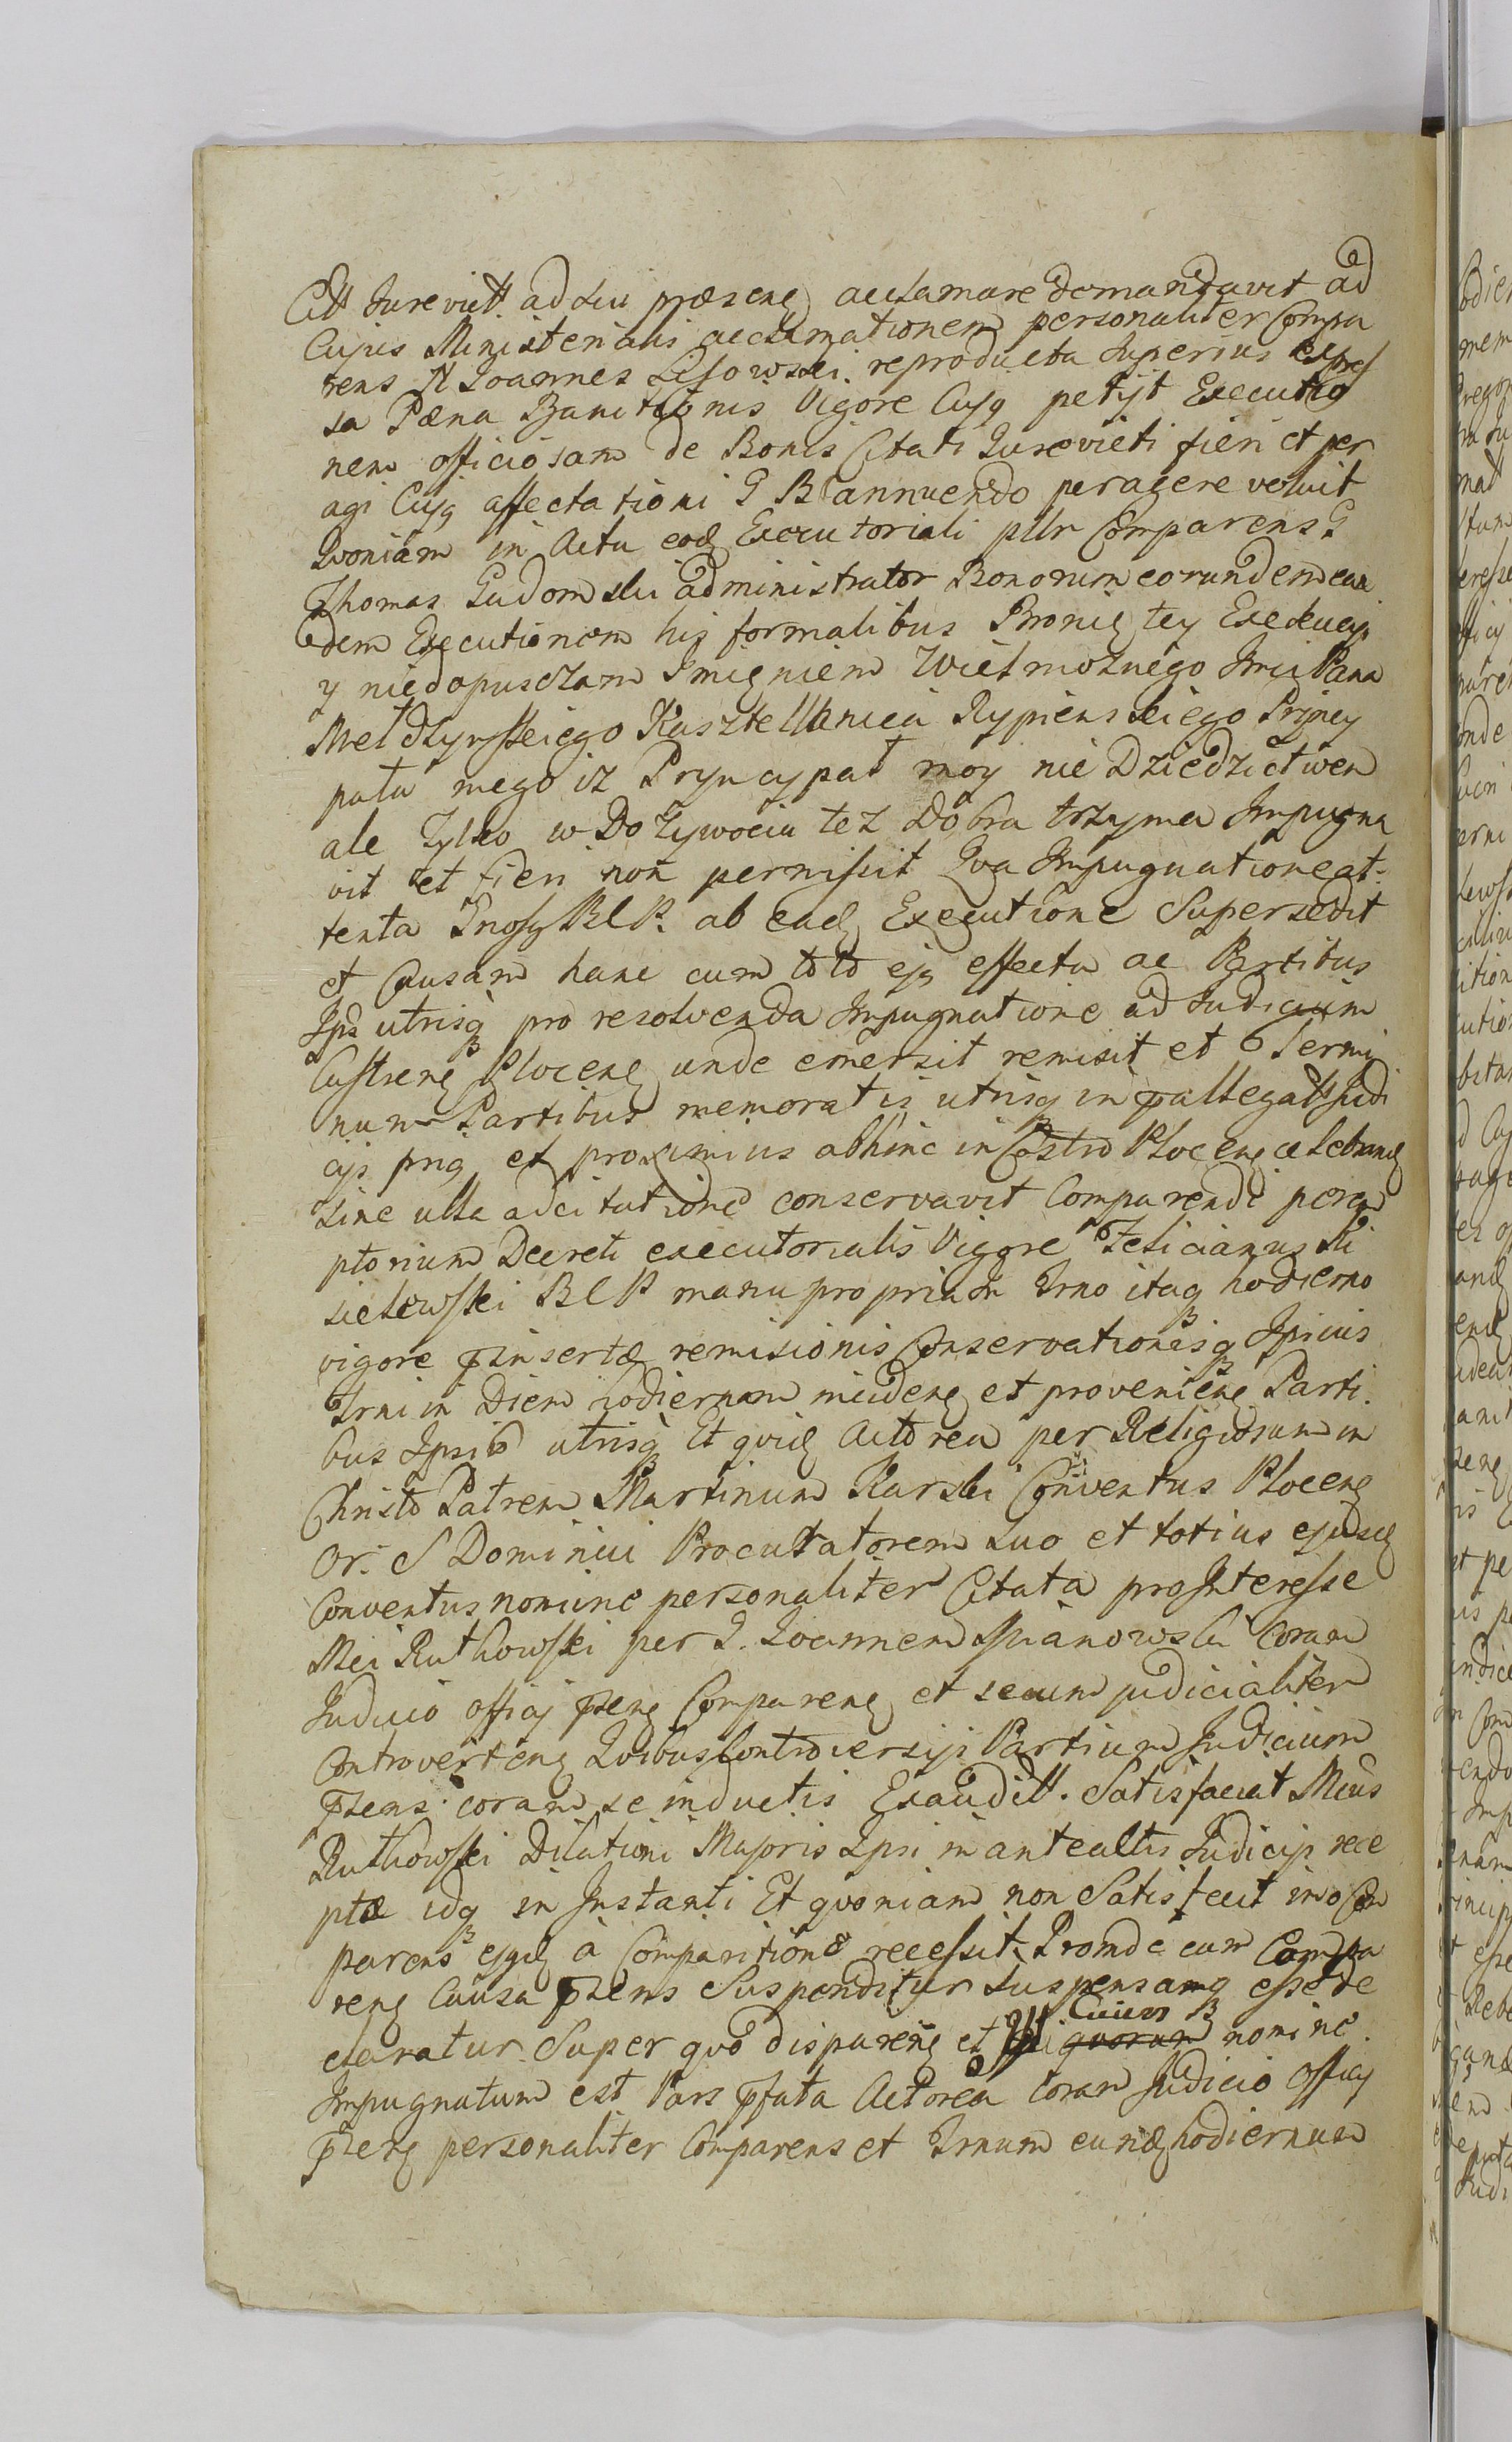 Citt Jurevictt ad sui præsenę acclamare demandavit ad
Cujus Ministerialis acclamationem personaliter Compa
rens N Joannes Lisowski reproducta superius expres
sa Pæna Banitionis Vigore Cujq petijt Executio
nem officiosam de Bonis Citati Jurevicti fieri et per
agi Cujq affectationi G B annuendo peragere voluit
Qvoniam in Actu eodę Executoriali pllr Comparens G
Thomas Gadomski administrator Bonorum eorundem ean
dem Executionem his formalibus Bronię tey Exekucyi
y niedopusczam Imięniem Wielmoznego Imci Pana
Meldzynskiego Kasztellanica Rypienskiego Prijncy
pała mego iz Pryncypał moy nie Dziedzictwem
ale Tylko w Dozywociu tez Dobra trzyma Impugna
vit et fieri non permisit Qva Impugnatione at-
tenta Gnosq B C P. ab eadę Executione Supersedit
et Causam hanc cum toto ejq effectu ac Partibus
Ipś utrisq pro resolvenda Impugnatione ad Judicium
Castrenę Plocenę unde emersit remisit et Termi
num Partibus memoratis utrisq in pallegatt Judi
cijs priq et proximius abhinc in Castro Plocenę celebrandę
sine ulla adcitatione conservavit Comparendi perem
ptorium Decreti executorialis Vigore Felicianus Mi
sielewski B C P manu propria In Trno itaq hodierno
vigore pinsertæ remisionis Conservationisq Ipsius
Trni in Diem hodiernam incidenę et provenienę Parti
bus Ipsis utrisq Et qvidę Actorea per Religiosum in
Christo Patrem Martinum Karski Conventus Plocenę
Or: S Dominici Procuratorem suo et totius ejusdę
Conventus nomine personaliter Citata pro Interesse
Mei Rutkowski per G. Joannem Mianowski coram
Judicio officij psenę Comparenę et secum judicialiter
controvertenę Qvibus Controversijs Partium Judicium
psens coram se inductis Exauditt. Satisfaciat Meus
Rutkowski Dilationi Majoris Ipsi in anteactis Judicijs rece
ptæ idq in Instanti Et qvoniam non Satisfecit imo Com
parens ejqdę à Comparitione recessit. Proinde eum Compa
renę Causa psens Suspenditur Suspensamq esse de
claratur. Super qvo disparenę et Cuius qvorum nomine
Impugnatum est Pars pfata Actorea coram Judicio officij
psenę personaliter Comparens et Trnum eundę hodiernum